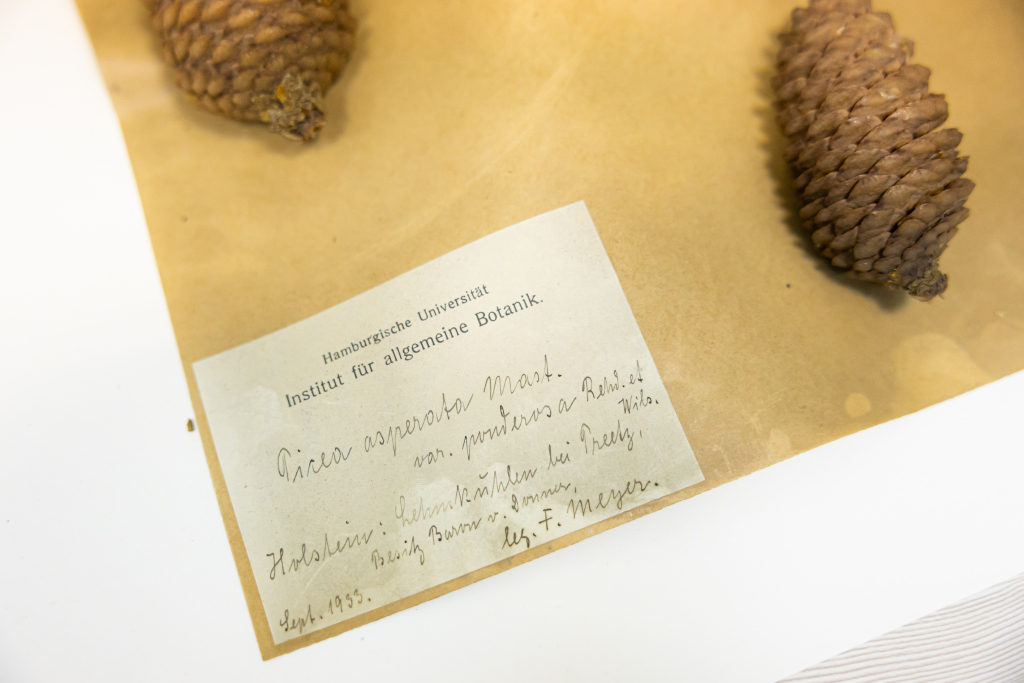 Hamburgische Universität
Institut für allgemeine Botanik.
Picea asperata Mast.
var. ponderosa Rehd. et
Wils.
Holstein: Lehmkuhlen bei Preetz,
Besitz Baron v. Donner,
leg. F. Meyer.
Sept. 1933.